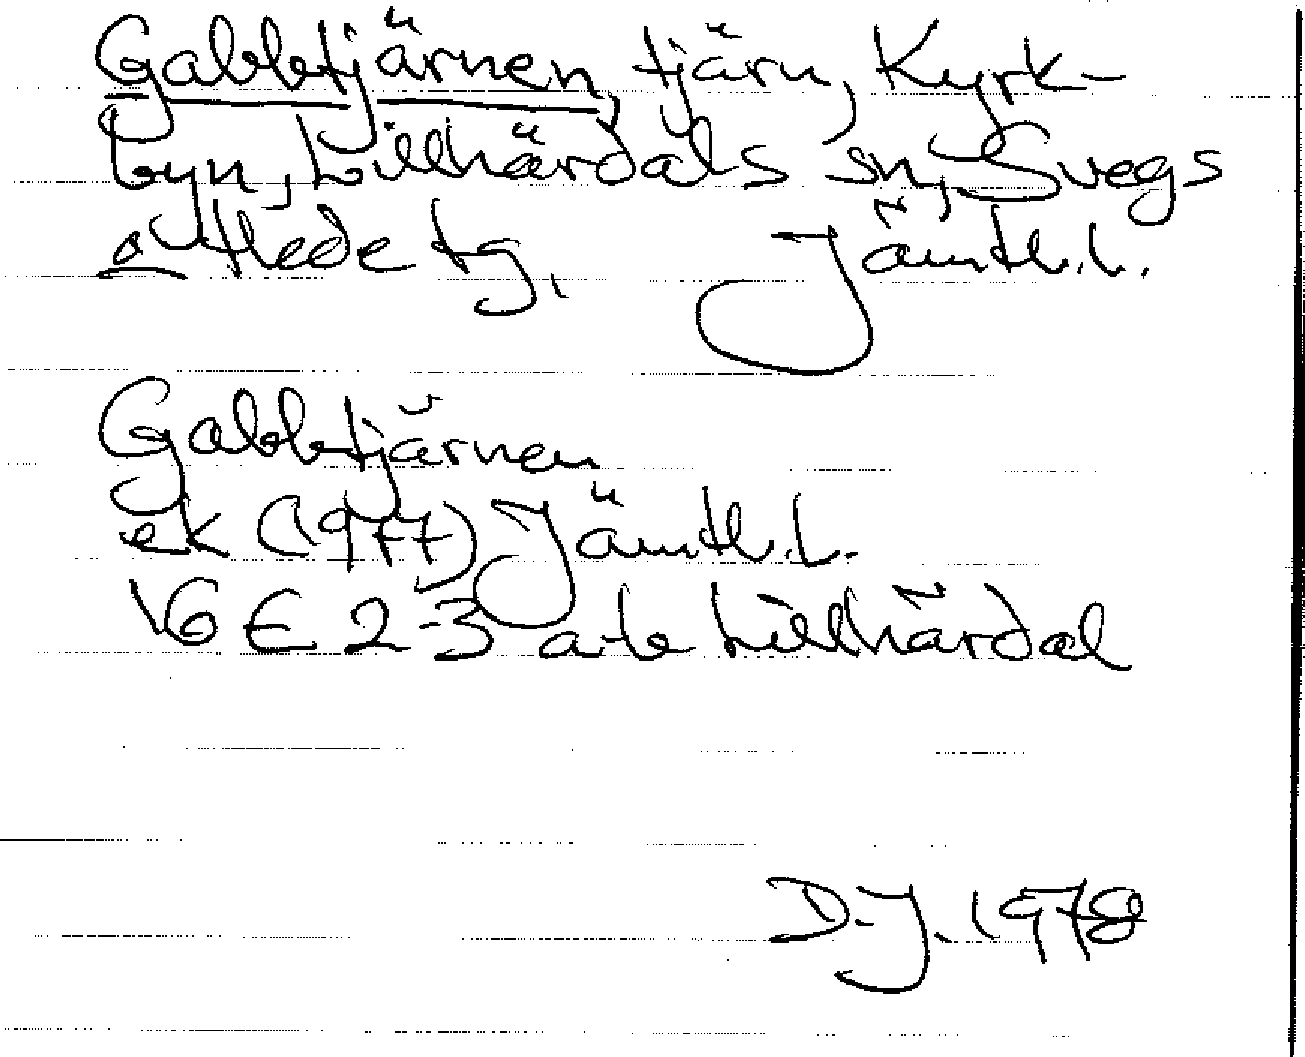 Gabbtjärnen, tjärn, Kyrk-
byn, Lillhärdals sn, Svegs
o Hede tg. Jämtl.l.
Gabbtjärnen
ek (1977) Jämtl.l.
16 E 2-3 a-b Lillhärdal
D.J. 1978